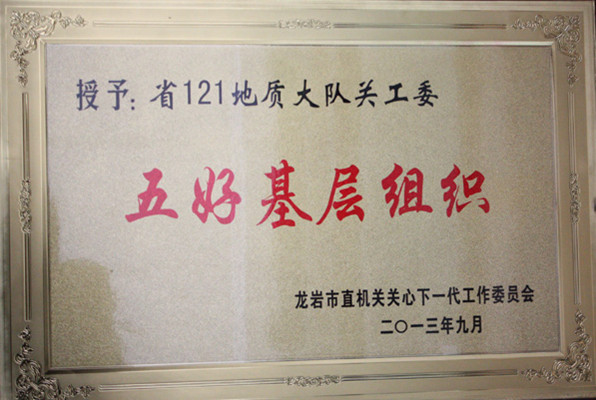 授予：省121地质大队关工委
五好基层组织
龙岩市直机关关心下一代工作委员会
二〇一三年九月